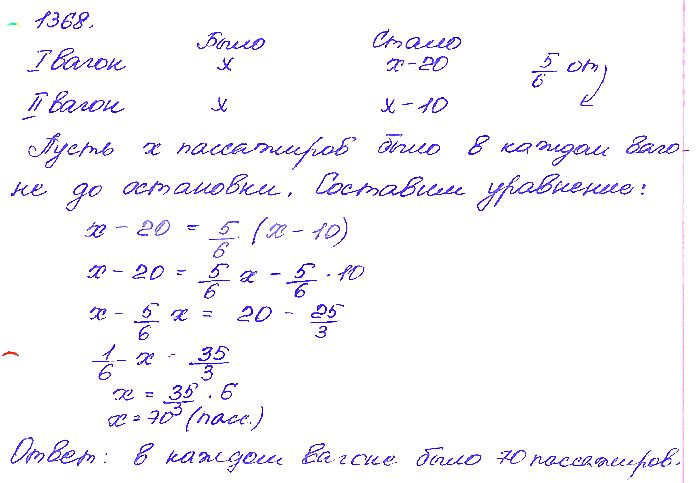 1368.
Было Стало
I вагон x x-20 5/6 от
II вагон x x-10
Пусть x пассажиров было в каждом ваго-
не до остановки. Составим уравнение:
x - 20 = 5/6 · (x - 10)
x - 20 = 5/6 x - 5/6 · 10
x - 5/6 x = 20 - 25/3
1/6 x - 35/3
x = 35/3 · 6
x = 70 (пасс.)
Ответ: в каждом вагоне было 70 пассажиров.